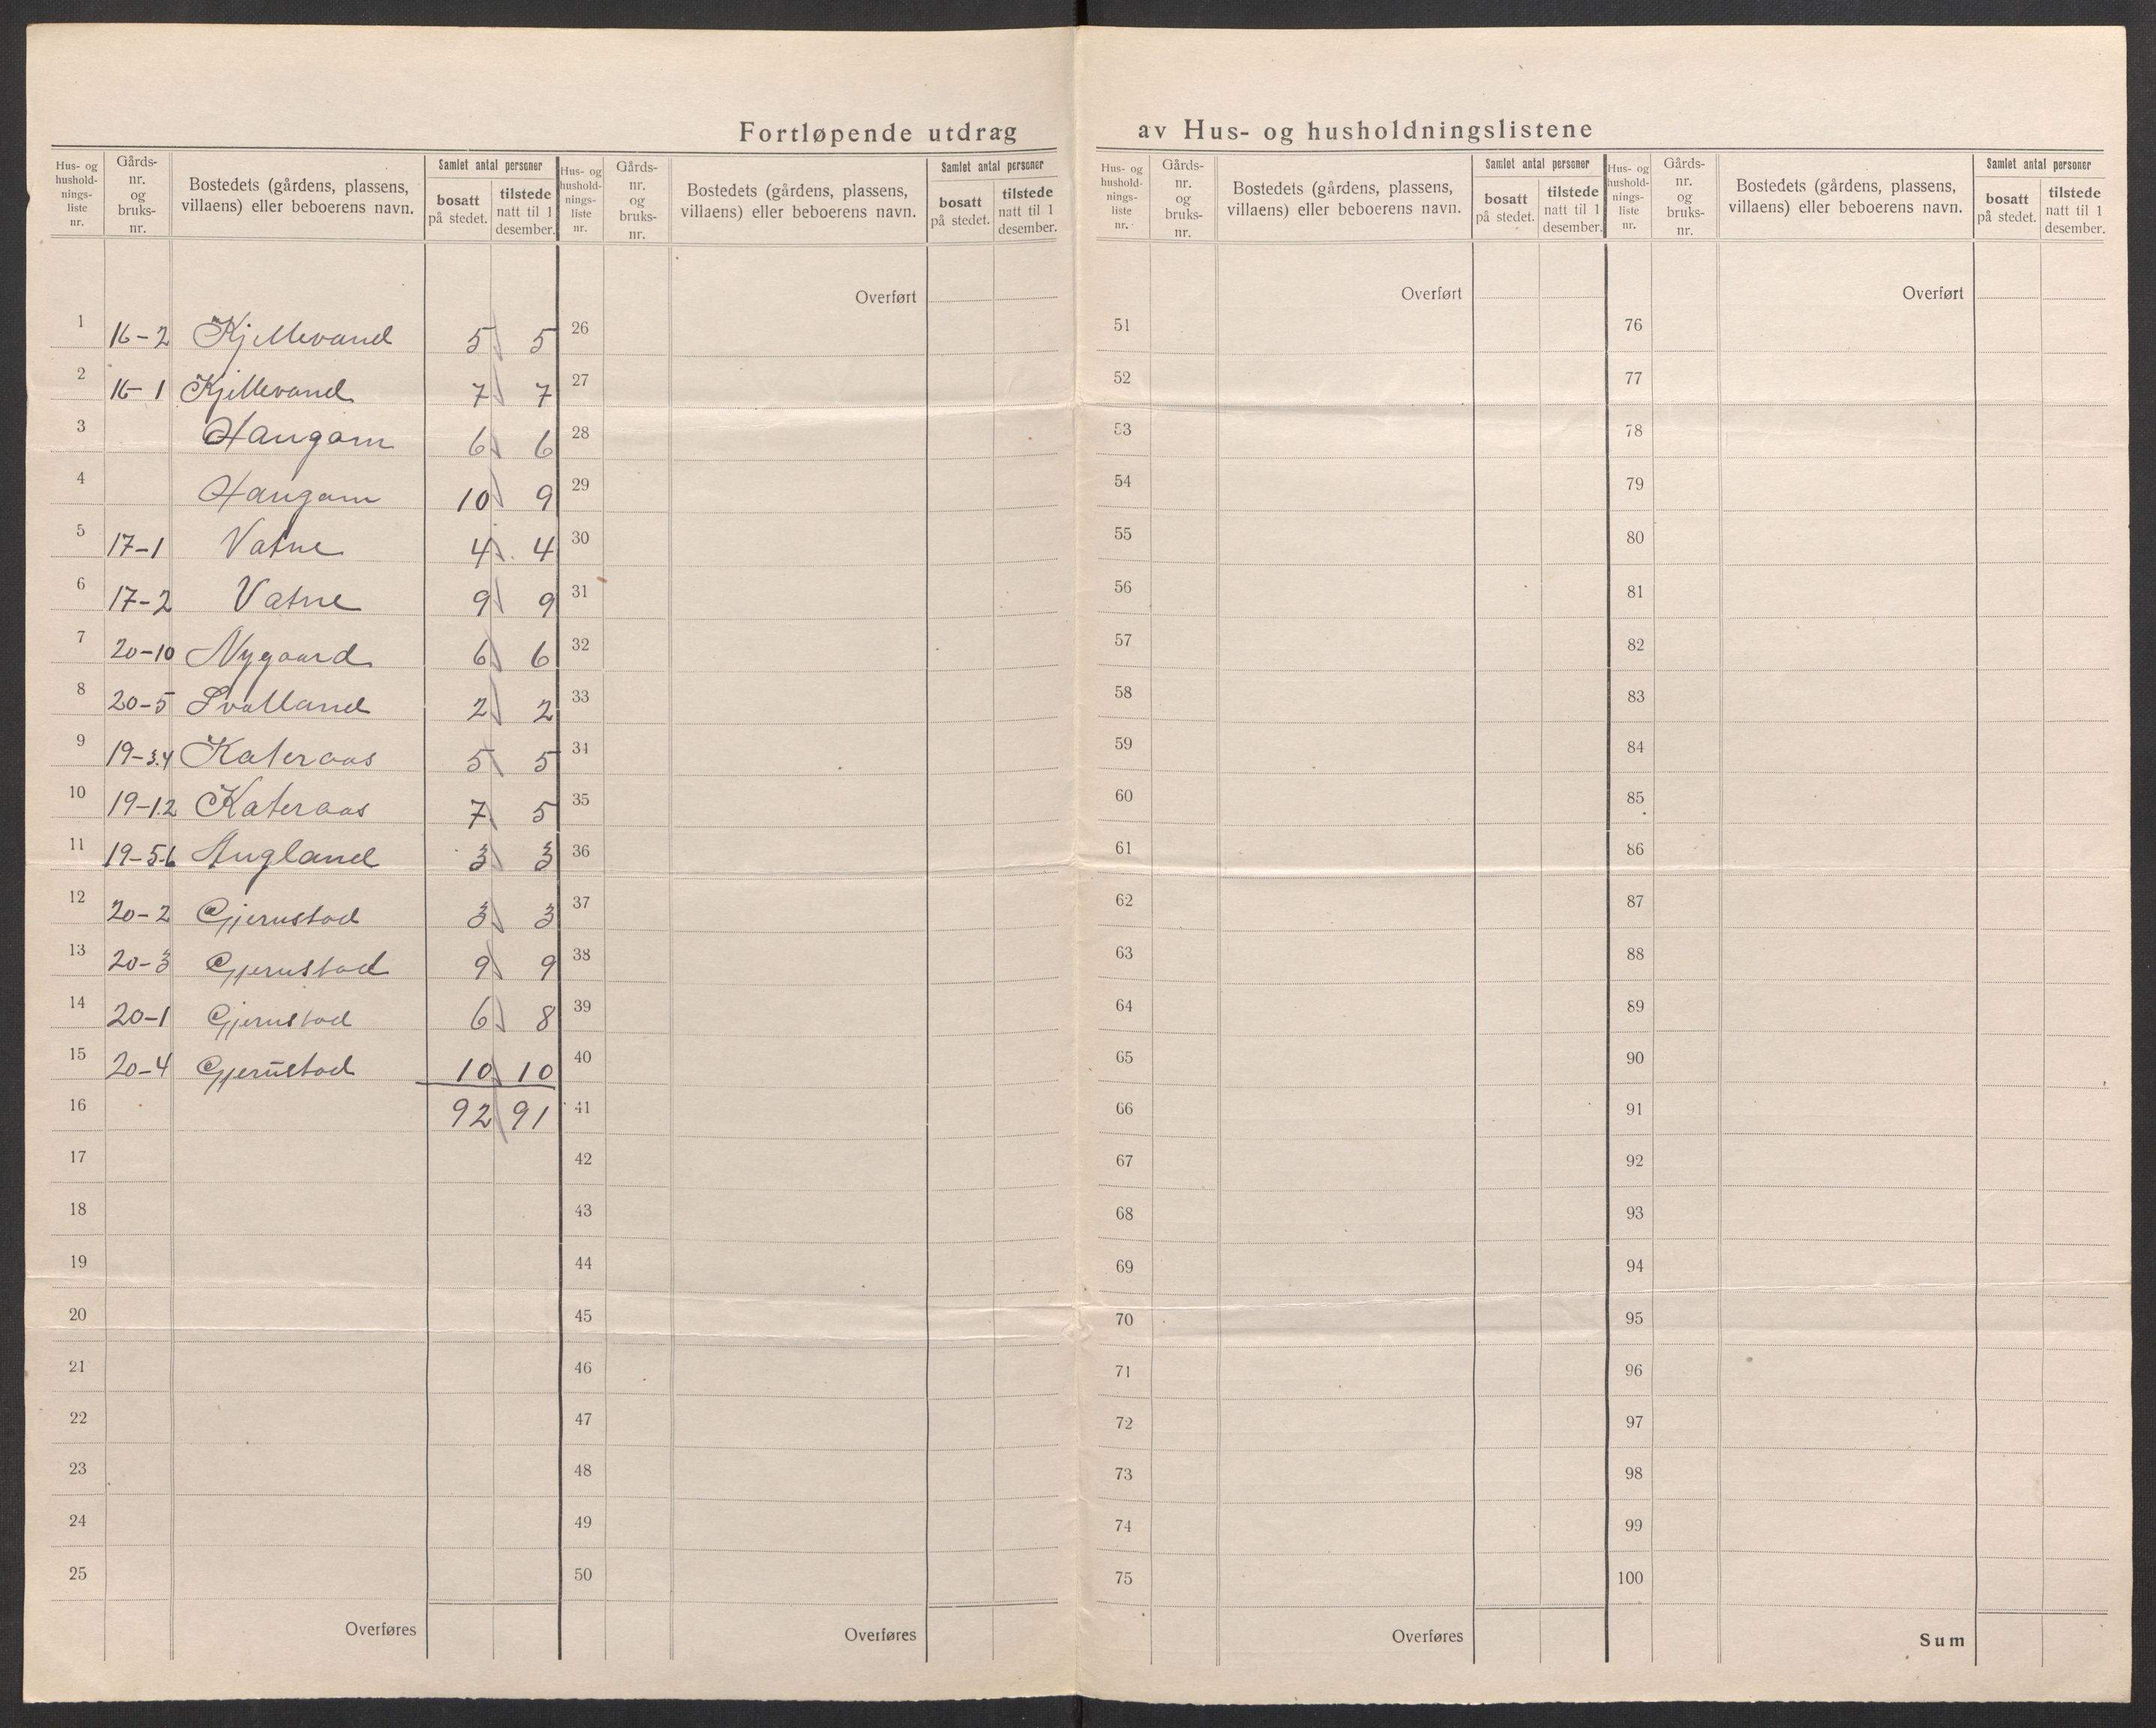 Fortløpende utdrag av Hus- og husholdningslistene
Hus- og hushold-nings-liste nr. Gårds-nr. og bruks-nr. Bostedets (gårdens, plassens, villaens) eller beboerens navn. Samlet antal personer bosatt på stedet. tilstede natt til 1 desember.
Hus- og hushold-nings-liste nr. Gårds-nr. og bruks-nr. Bostedets (gårdens, plassens, villaens) eller beboerens navn. Samlet antal personer bosatt på stedet. tilstede natt til 1 desember.
Hus- og hushold-nings-liste nr. Gårds-nr. og bruks-nr. Bostedets (gårdens, plassens, villaens) eller beboerens navn. Samlet antal personer bosatt på stedet. tilstede natt til 1 desember.
Hus- og hushold-nings-liste nr. Gårds-nr. og bruks-nr. Bostedets (gårdens, plassens, villaens) eller beboerens navn. Samlet antal personer bosatt på stedet. tilstede natt til 1 desember.
Overført Overført Overført
1 16-2 Kjellevand 5 5 26 51 76
2 16-1 Kjellevand 7 7 27 52 77
3 Haugom 6 6 28 53 78
4 Haugom 10 9 29 54 79
5 17-1 Vatne 4 4 30 55 80
6 17-2 Vatne 9 9 31 56 81
7 20-10 Nygaard 6 6 32 57 82
8 20-5 Svalland 2 2 33 58 83
9 19-3.4 Kateraas 5 5 34 59 84
10 19-1.2 Kateraas 7 5 35 60 85
11 19-5-6 Augland 3 3 36 61 86
12 20-2 Gjerustad 3 3 37 62 87
13 20-3 Gjerustad 9 9 38 63 88
14 20-1 Gjerustad 6 8 39 64 89
15 20-4 Gjerustad 10 10 40 65 90
16 92 91 41 66 91
17 42 67 92
18 43 68 93
19 44 69 94
20 45 70 95
21 46 71 96
22 47 72 97
23 48 73 98
24 49 74 99
25 50 75 100
Overføres Overføres Overføres Sum